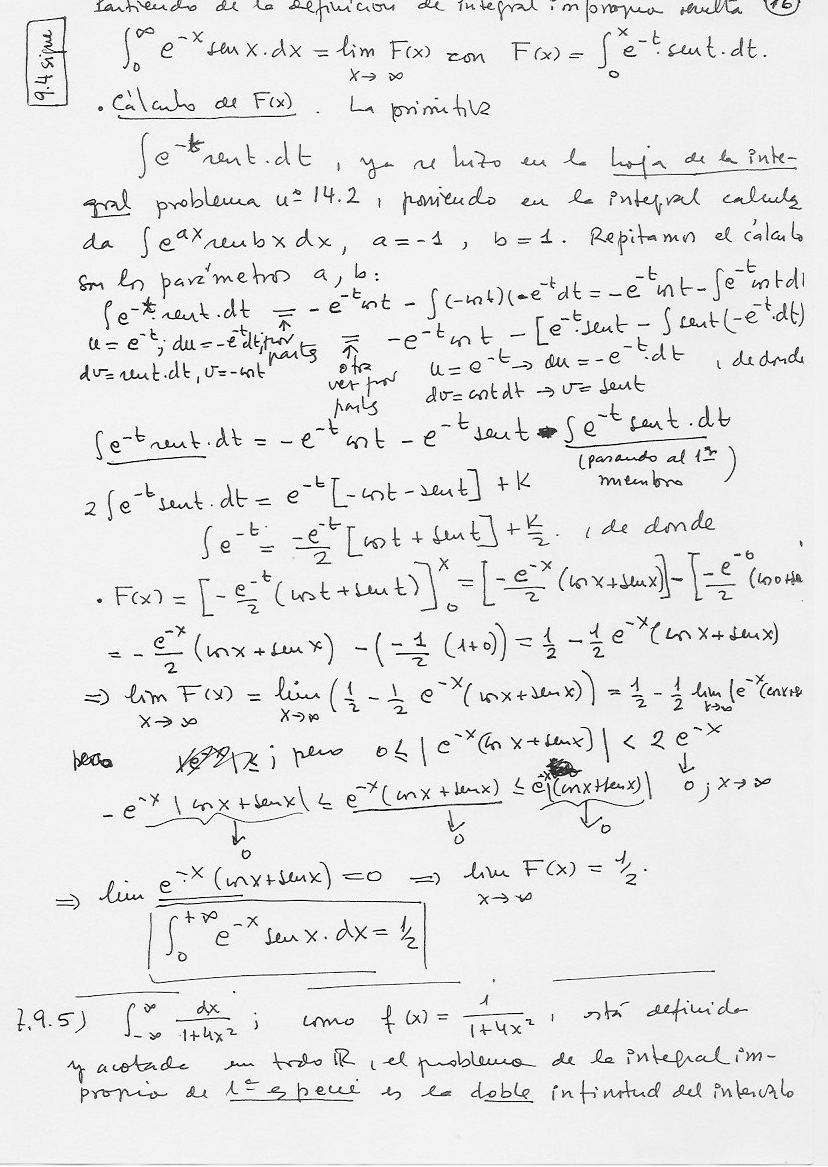 Partiendo de la definición de integral impropia resulta (16)
9.4 sigue
∫₀^∞ e^{-x} sen x·dx = lim_{x→∞} F(x) con F(x) = ∫₀^x e^{-t}·sen t·dt.
· Cálculo de F(x). La primitiva
∫e^{-t} sen t·dt, ya se hizo en la hoja de la inte-
gral problema nº 14.2, poniendo en la integral calcula
da ∫e^{ax} sen bx dx, a=-1, b=1. Repitamos el cálculo
son los parámetros a, b:
∫e^{-t} sen t·dt = -e^{-t} cos t - ∫(-cos t)(-e^{-t} dt = -e^{-t} cos t - ∫e^{-t} cos t dt
u = e^{-t}; du = -e^{-t} dt, por partes = -e^{-t} cos t - [e^{-t}·sen t - ∫sen t (-e^{-t}·dt)
dv = sen t·dt, v = -cos t
otra vez por partes
u = e^{-t} → du = -e^{-t}·dt, de donde
dv = cos t dt → v = sen t
∫e^{-t} sen t·dt = -e^{-t} cos t - e^{-t} sen t - ∫e^{-t} sen t·dt
(pasando al 1er miembro)
2∫e^{-t} sen t·dt = e^{-t} [-cos t - sen t] + K
∫e^{-t} = -e^{-t}/2 [cos t + sen t] + K/2, de donde
· F(x) = [-e^{-t}/2 (cos t + sen t)]₀^x = [-e^{-x}/2 (cos x + sen x)] - [-e^{-0}/2 (cos 0 + se
= -e^{-x}/2 (cos x + sen x) - (-1/2 (1+0)) = 1/2 - 1/2 e^{-x} (cos x + sen x)
⇒ lim_{x→∞} F(x) = lim_{x→∞} (1/2 - 1/2 e^{-x} (cos x + sen x)) = 1/2 - 1/2 lim_{x→∞} (e^{-x} (cos x + s
pero ; pero 0 ≤ |e^{-x} (cos x + sen x)| < 2 e^{-x}
↓ 0; x→∞
-e^{-x} |cos x + sen x| ≤ e^{-x} (cos x + sen x) ≤ e^{-x} |(cos x + sen x)|
↓ 0 ↓ 0 ↓ 0
⇒ lim e^{-x} (cos x + sen x) = 0 ⇒ lim_{x→∞} F(x) = 1/2.
∫₀^{+∞} e^{-x} sen x·dx = 1/2
7.9.5) ∫_{-∞}^{∞} dx/(1+4x²); como f(x) = 1/(1+4x²), está definida
y acotada en todo ℝ, el problema de la integral im-
propia de 1ª especie es la doble infinitud del intervalo